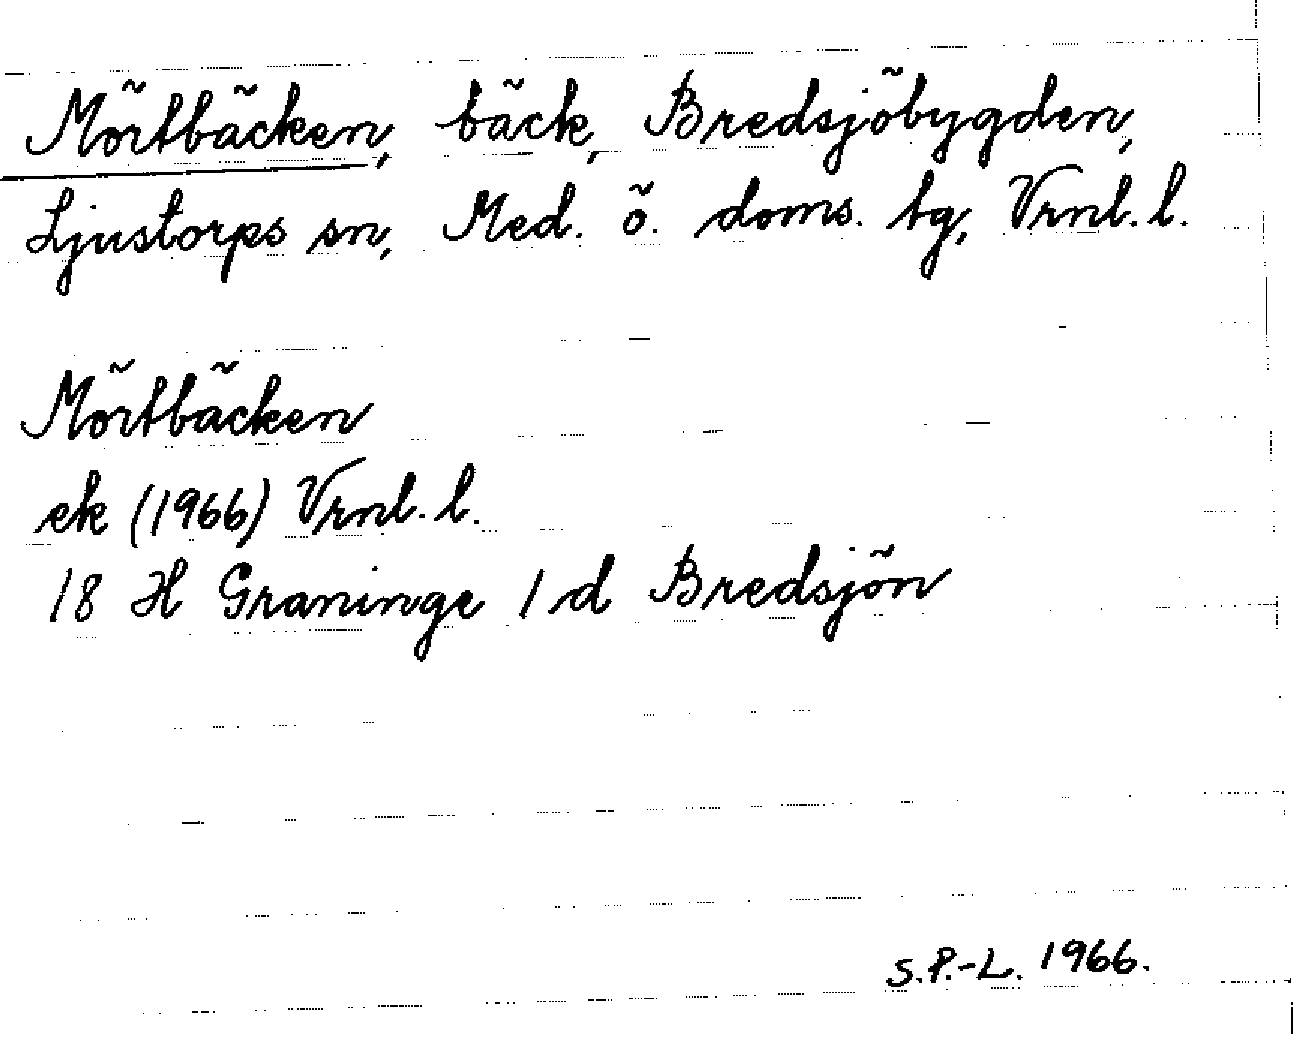 Mörtbäcken, bäck, Bredsjöbygden,
Ljustorps sn, Med. ö. doms. tg, Vrnl. l.
Mörtbäcken
ek (1966) Vrnl. l.
18 H Graninge 1 d Bredsjön
S.P.-L. 1966.